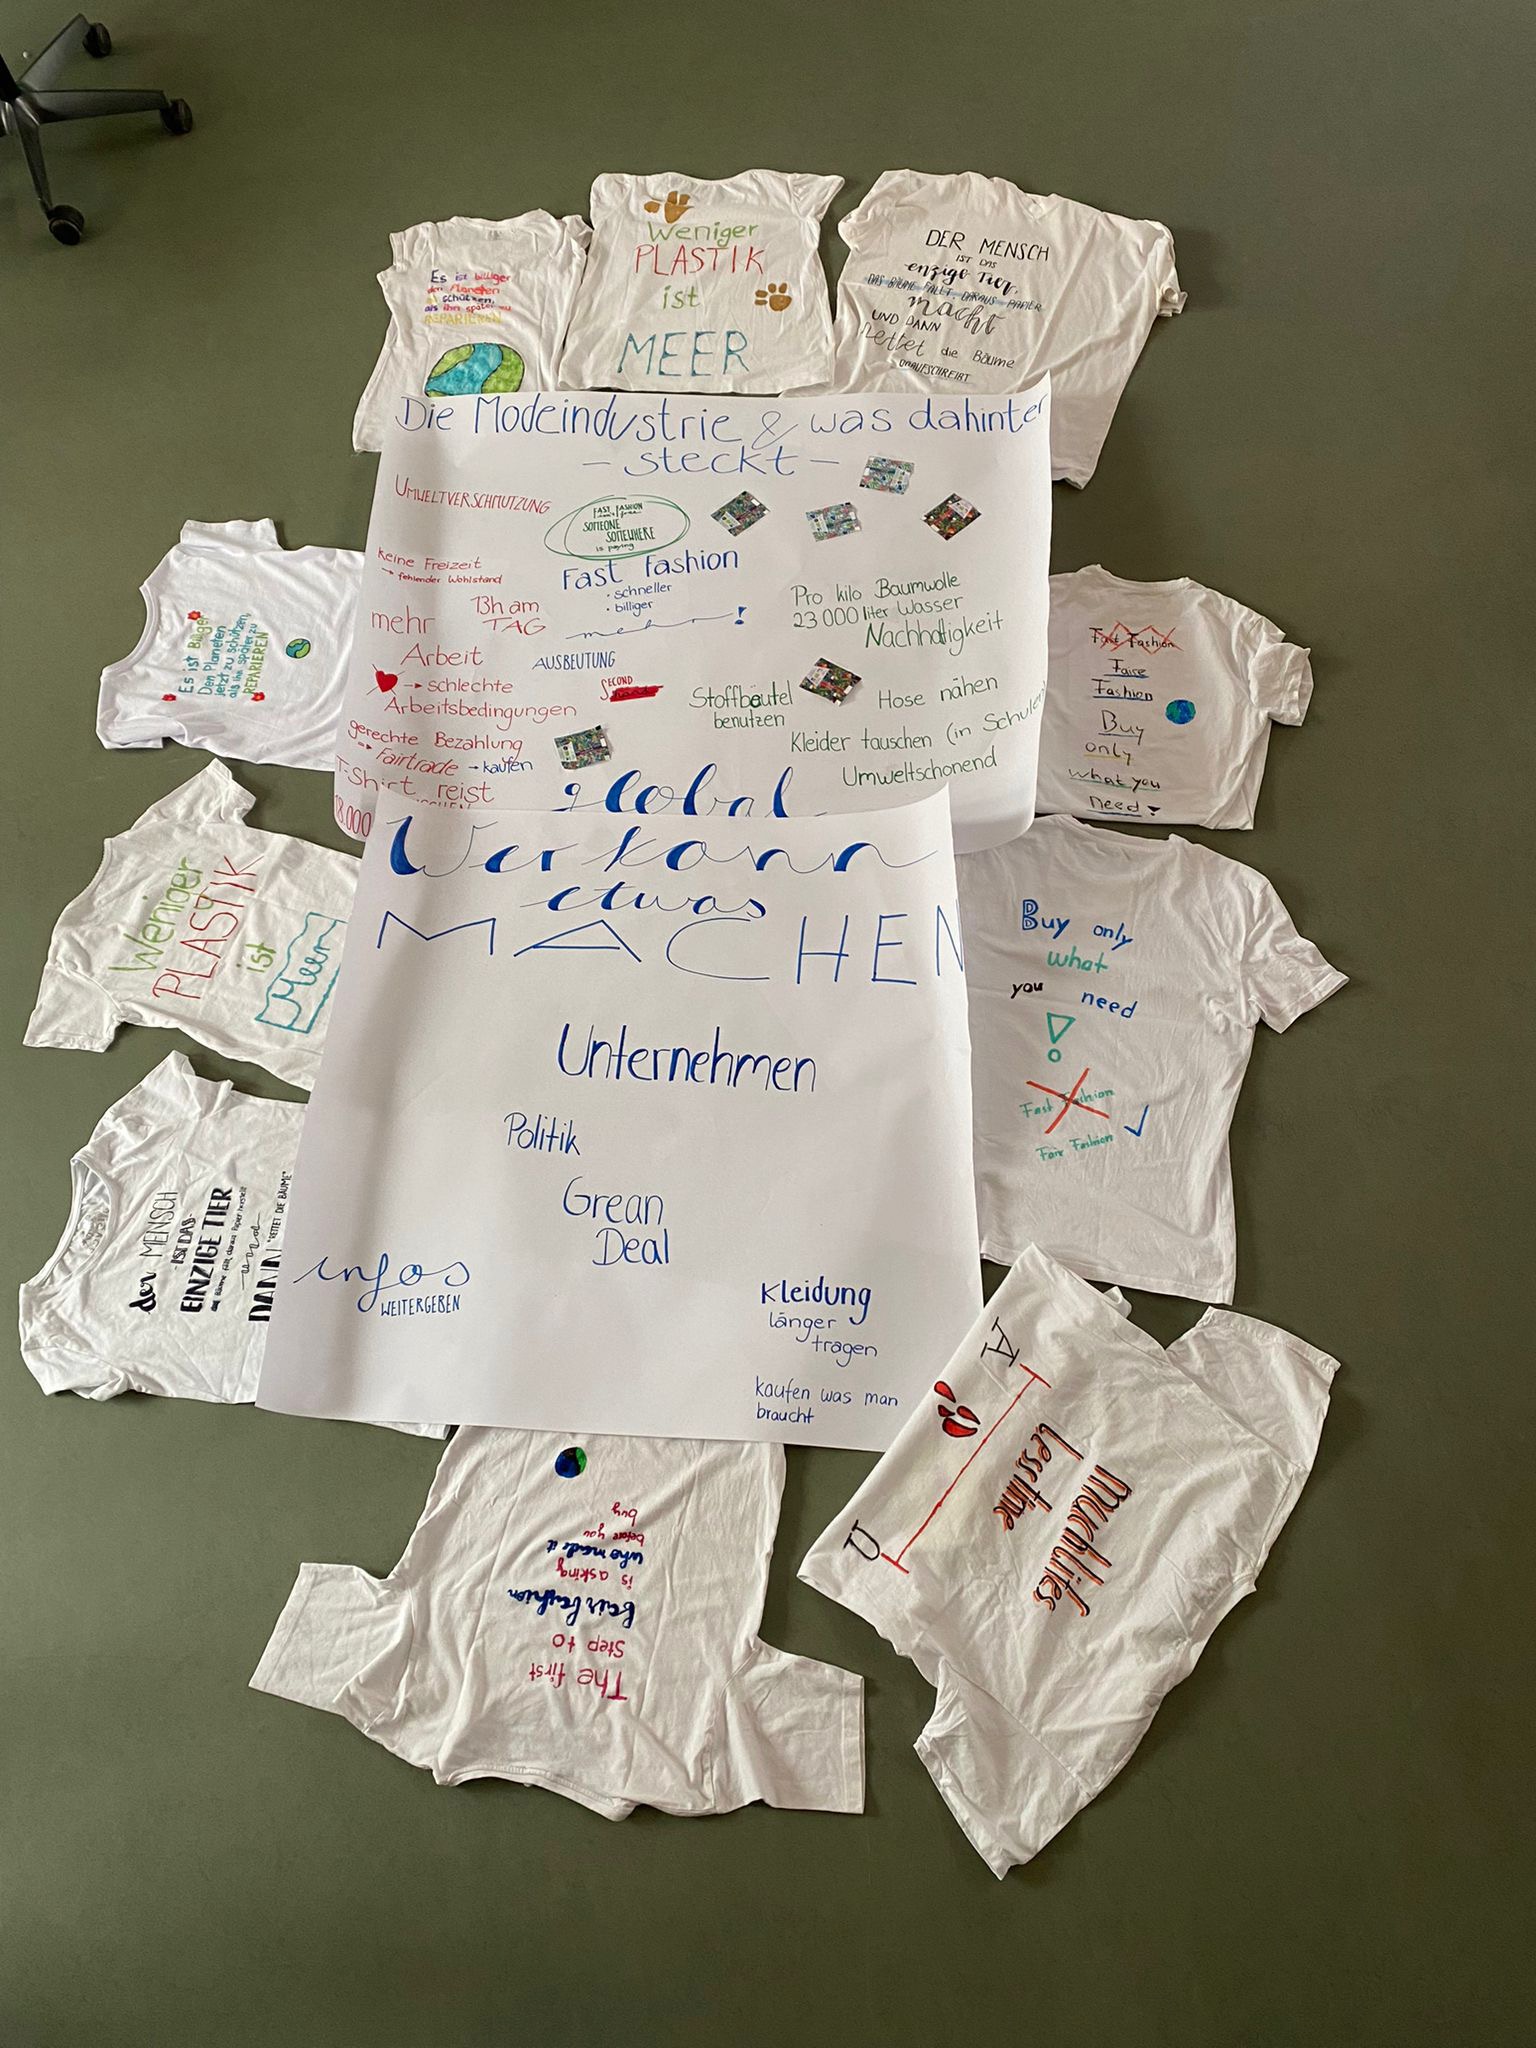 Es ist billiger
den Planeten
schützen,
als ihn später zu
REPARIEREN
Weniger
PLASTIK
ist
MEER
DER MENSCH
IST DAS
enzige Tier,
DAS BÄUME FÄLLT, DARAUS PAPIER
macht
UND DANN
rettet die Bäume
DRAUFSCHREIBT
Die Modeindustrie & was dahinter
- steckt -
UMWELTVERSCHMUTZUNG
FAST FASHION
isn't free
SOMEONE
SOMEWHERE
is paying
keine Freizeit
→ fehlender Wohlstand
Fast Fashion
· schneller
· billiger
mehr!
13h am
TAG
mehr
Arbeit
→ schlechte
Arbeitsbedingungen
AUSBEUTUNG
SECOND
hand
Pro kilo Baumwolle
23 000 liter Wasser
Nachhaltigkeit
Stoffbeutel
benutzen
Hose nähen
Kleider tauschen (in Schulen)
Umweltschonend
gerechte Bezahlung
→ Fairtrade → kaufen
T-Shirt reist
18.000
global
Wer kann
etwas
MACHEN
Unternehmen
Politik
Grean
Deal
infos
WEITERGEBEN
Kleidung
länger
tragen
kaufen was man
braucht
Es ist Billiger
Den Planeten
jetzt zu schützen,
als ihn später zu
REPARIEREN
Weniger
PLASTIK
ist
Meer
der MENSCH
-IST DAS-
EINZIGE TIER
das Bäume fällt, daraus Papier herstellt
und
DANN "RETTET DIE BÄUME"
Fast Fashion
Faire
Fashion
Buy
only
what you
need!
Buy only
what
you need
!
Fast Fashion
Fair Fashion
A
Ω
Less time
much lifes
The first
Step to
fair fashion
is asking
who made it
before you
buy